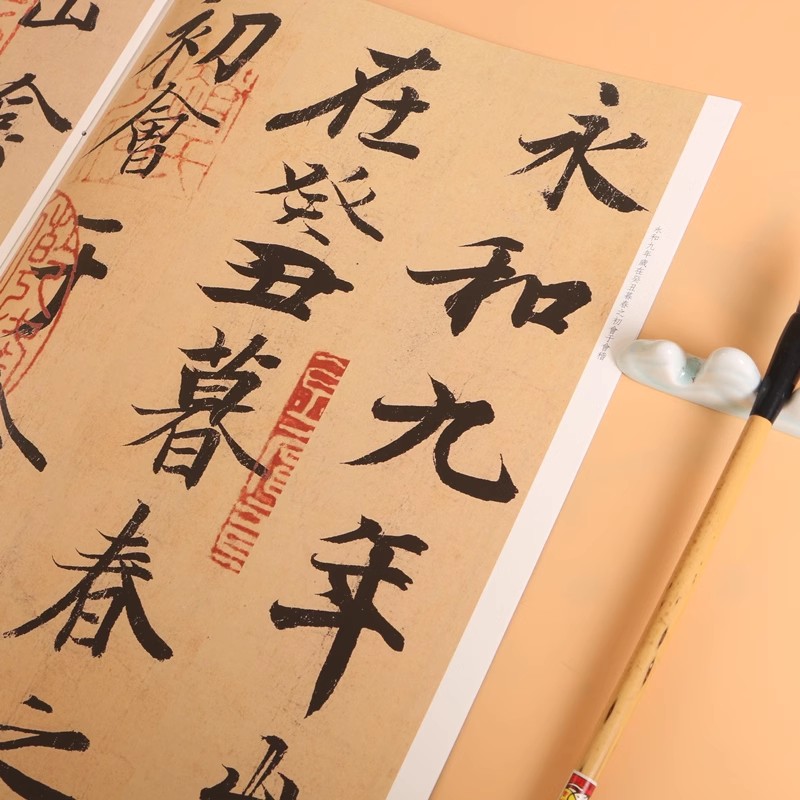 永和九年
在癸丑暮春之
初會于
山
永和九年歲在癸丑暮春之初會于會稽